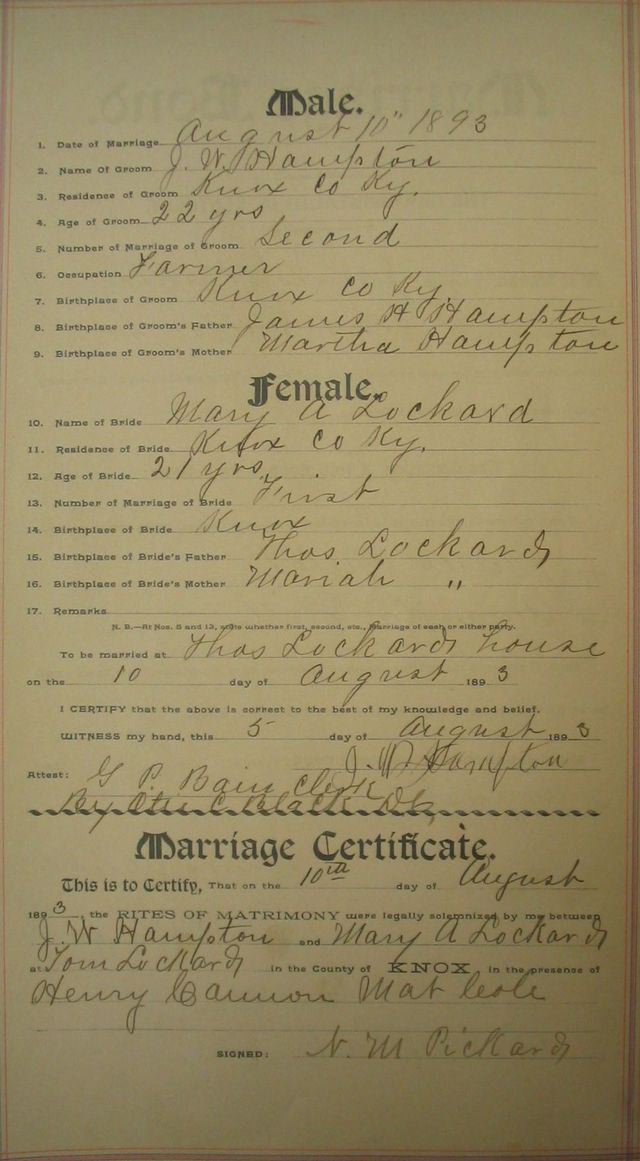 Male.
1. Date of Marriage August 10" 1893
2. Name Of Groom J. W. Hampton
3. Residence of Groom Knox Co Ky.
4. Age of Groom 22 yrs
5. Number of Marriage of Groom Second
6. Occupation Farmer
7. Birthplace of Groom Knox Co Ky
8. Birthplace of Groom's Father James H Hampton
9. Birthplace of Groom's Mother Martha Hampton
Female.
10. Name of Bride Mary A Lockard
11. Residence of Bride Knox Co Ky.
12. Age of Bride 21 yrs
13. Number of Marriage of Bride First
14. Birthplace of Bride Knox
15. Birthplace of Bride's Father Thos Lockard
16. Birthplace of Bride's Mother Mariah "
17. Remarks
N. B.—At Nos. 5 and 13, state whether first, second, etc., Marriage of each or either party.
To be married at Thos Lockards house
on the 10 day of August 1893
I CERTIFY that the above is correct to the best of my knowledge and belief.
WITNESS my hand, this 5 day of August 1893
J. W. Hampton
Attest: G P. Bain Clerk
By C Black Dk
Marriage Certificate.
This is to Certify, That on the 10th day of August
1893, the RITES OF MATRIMONY were legally solemnized by me between
J. W Hampton and Mary A Lockard
at Tom Lockard in the County of KNOX in the presence of
Henry Cannon Mat Cole
SIGNED: N. M Pickard